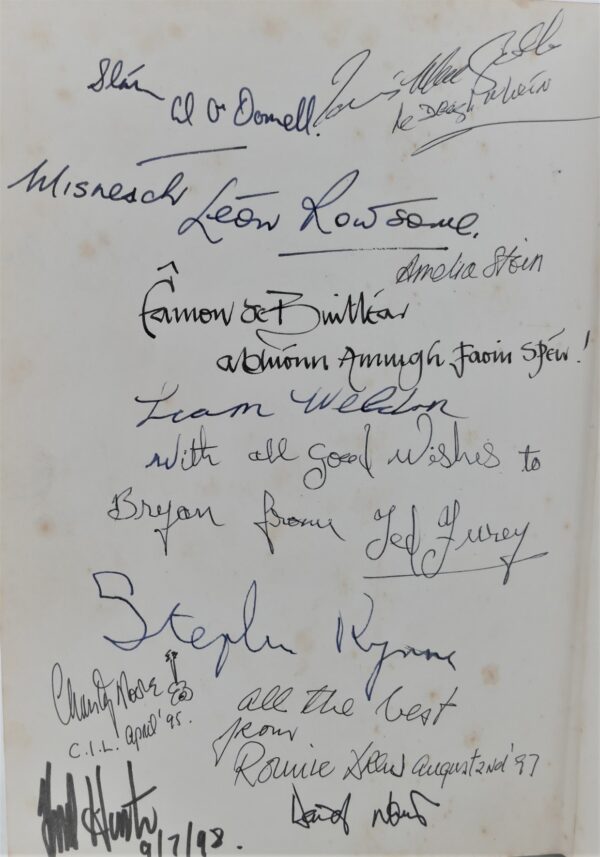 Slán
Al O'Donnell.
Misneach
Léon Rowsome.
Amelia Stein
Éamon de Buitléar
a bhíonn Amuigh faoin Spéir!
Liam Weldon
with all good wishes to
Bryan from Ted Furey
Stephen Rynne
Christy Moore
C.I.L. april '95.
all the best
from
Ronnie Drew August 2nd '97
Hunt
9/7/98.